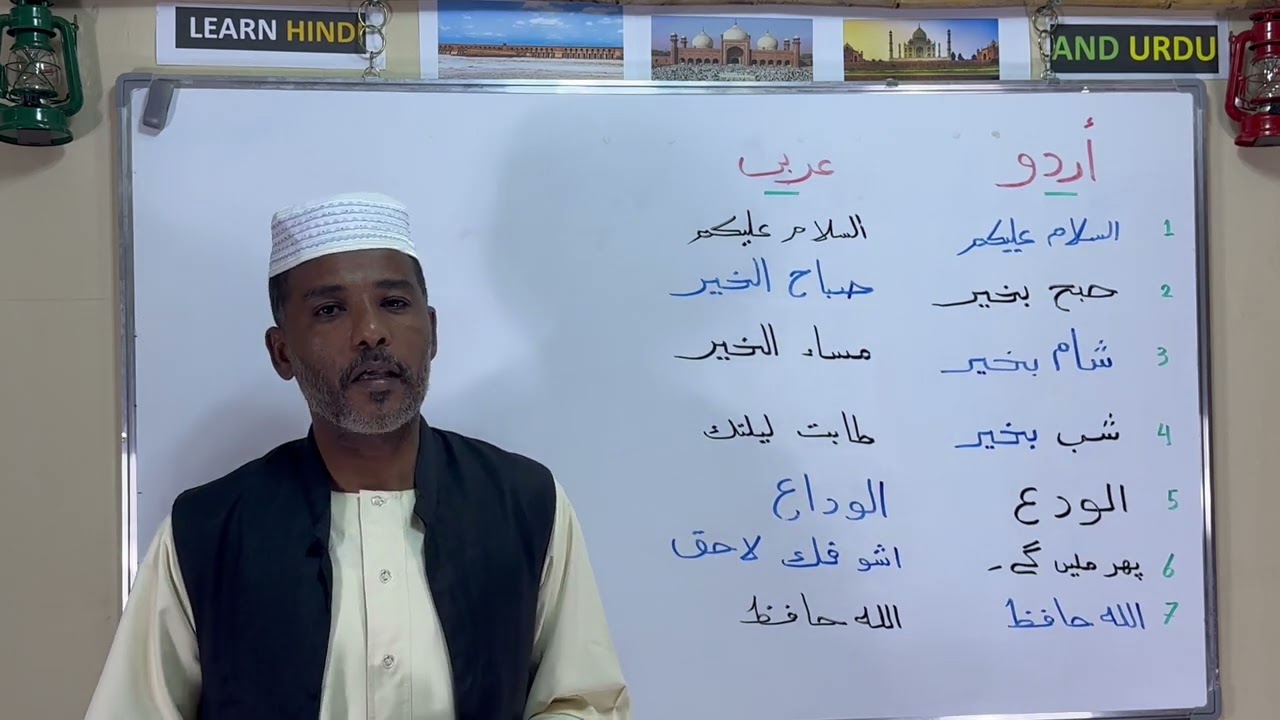 LEARN HINDI AND URDU
أردو عربى
1 السلام علیکم السلام عليكم
2 صبح بخير صباح الخير
3 شام بخير مساء الخير
4 شب بخير طابت ليلتك
5 الودع الوداع
6 پھر ملیں گے۔ اشوفك لاحق
7 الله حافظ الله حافظ